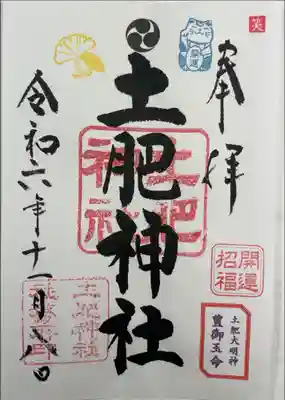 笑
奉拝
開運
土肥神社
土肥神社
開運
招福
土肥大明神
豊御玉命
令和六年十一月十八日
土肥神社